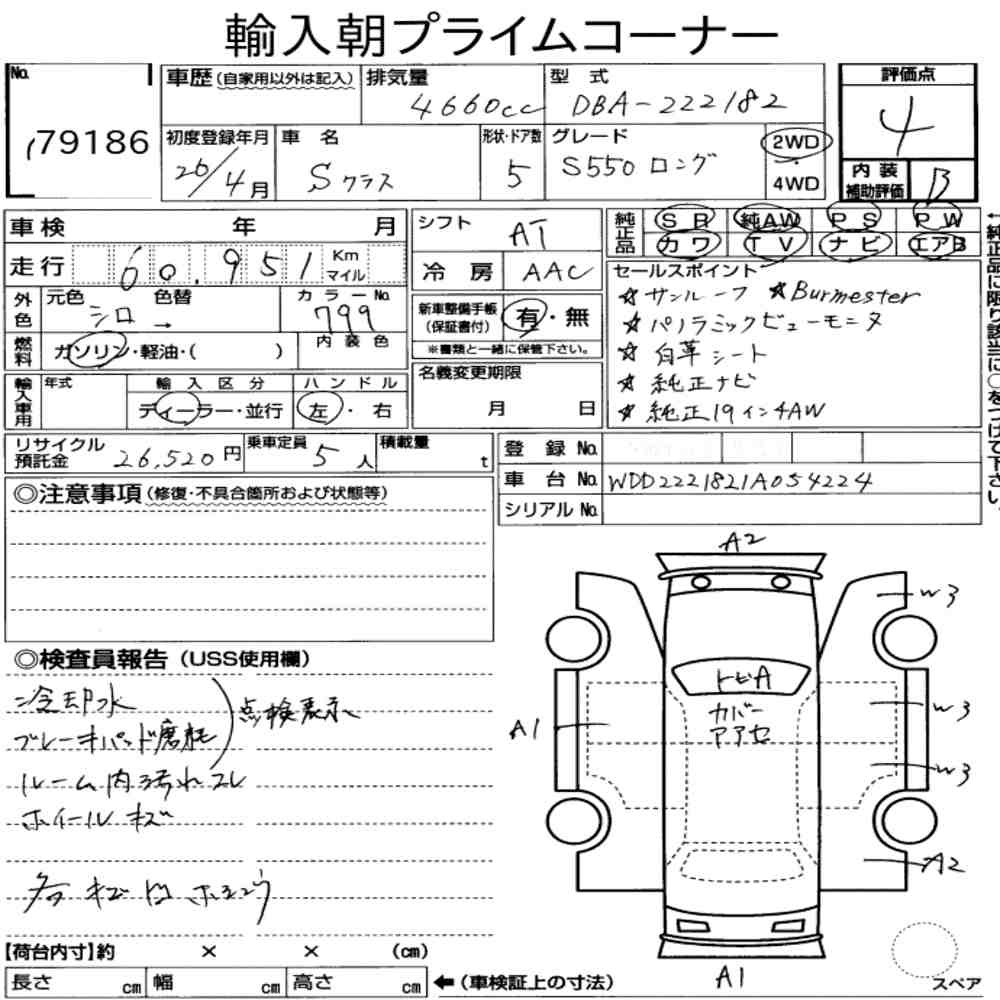 輸入朝プライムコーナー
No.
79186
車歴(自家用以外は記入)
排気量
4660cc
型 式
DBA-222182
初度登録年月
26/4月
車 名
Sクラス
形状・ドア数
5
グレード
S550 ロング
2WD
・
4WD
評価点
4
内 装
補助評価
B
車検 年 月
走行 60,951 Km
マイル
外色
元色
シロ →
色替
カラーNo.
799
燃料
ガソリン・軽油・( )
内装色
輸入車用
年式
輸入区分
ディーラー・並行
ハンドル
左・右
シフト
AT
冷 房
AAC
新車整備手帳
(保証書付)
有・無
※書類と一緒に保管下さい。
名義変更期限
月 日
純正品
SR 純AW PS PW
カワ TV ナビ エアB
セールスポイント
☆サンルーフ ☆Burmester
☆パノラミックビューモニタ
☆白革シート
☆純正ナビ
☆純正19インチAW
←純正品に限り該当に○をつけて下さい。
リサイクル
預託金
26,520円
乗車定員
5人
積載量
t
登 録 No.
車 台 No. WDD2221821A054224
シリアル No.
◎注意事項(修復・不具合箇所および状態等)
◎検査員報告(USS使用欄)
冷却水
ブレーキパッド磨耗
点検表示
ルーム内汚れコレ
ホイールキズ
各キズ凹
A2
W3
トビA
カバー
アアセ
A1
W3
W3
A2
A1
スペア
【荷台内寸】約 × × (cm)
長さ cm 幅 cm 高さ cm
←(車検証上の寸法)